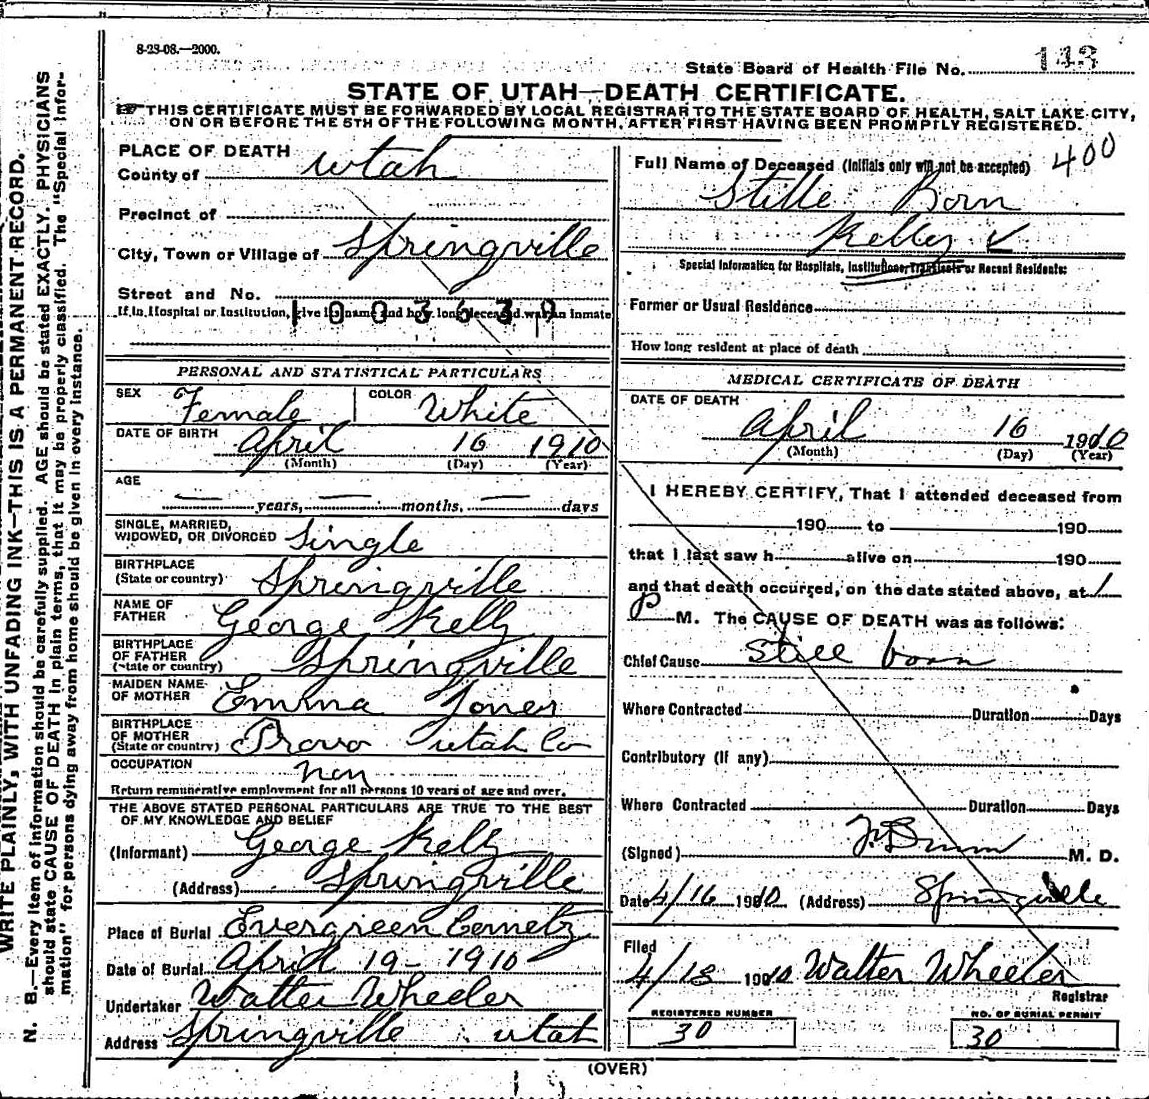 8-23-08.—2000.
State Board of Health File No. 143
STATE OF UTAH—DEATH CERTIFICATE.
THIS CERTIFICATE MUST BE FORWARDED BY LOCAL REGISTRAR TO THE STATE BOARD OF HEALTH, SALT LAKE CITY,
ON OR BEFORE THE 5TH OF THE FOLLOWING MONTH, AFTER FIRST HAVING BEEN PROMPTLY REGISTERED.
WRITE PLAINLY, WITH UNFADING INK—THIS IS A PERMANENT RECORD.
N. B.—Every item of information should be carefully supplied. AGE should be stated EXACTLY. PHYSICIANS
should state CAUSE OF DEATH in plain terms, that it may be properly classified. The "Special Infor-
mation" for persons dying away from home should be given in every instance.
PLACE OF DEATH
County of Utah
Precinct of
City, Town or Village of Springville
Street and No.
If in Hospital or Institution, give its name and how long deceased was an inmate
1003639
PERSONAL AND STATISTICAL PARTICULARS
SEX Female COLOR White
DATE OF BIRTH April 16 1910
(Month) (Day) (Year)
AGE
— years, — months, — days
SINGLE, MARRIED,
WIDOWED, OR DIVORCED Single
BIRTHPLACE
(State or country) Springville
NAME OF
FATHER George Kelly
BIRTHPLACE
OF FATHER
(State or country) Springville
MAIDEN NAME
OF MOTHER Emma Jones
BIRTHPLACE
OF MOTHER
(State or country) Provo Utah Co
OCCUPATION non
Return remunerative employment for all persons 10 years of age and over.
THE ABOVE STATED PERSONAL PARTICULARS ARE TRUE TO THE BEST
OF MY KNOWLEDGE AND BELIEF
(Informant) George Kelly
(Address) Springville
Place of Burial Evergreen Cemety
Date of Burial April 19 - 1910
Undertaker Walter Wheeler
Address Springville Utah
Full Name of Deceased (Initials only will not be accepted) 400
Stille Born
Kelly ✓
Special Information for Hospitals, Institutions, Transients or Recent Residents:
Former or Usual Residence
How long resident at place of death
MEDICAL CERTIFICATE OF DEATH
DATE OF DEATH
April 16 1910
(Month) (Day) (Year)
I HEREBY CERTIFY, That I attended deceased from
190 to 190
that I last saw h alive on 190
and that death occurred, on the date stated above, at 1
P M. The CAUSE OF DEATH was as follows:
Chief Cause Still born
Where Contracted Duration Days
Contributory (if any)
Where Contracted Duration Days
(Signed) M. D.
Date 4/16 1910 (Address) Springville
Filed
4/18 1910 Walter Wheeler
Registrar
REGISTERED NUMBER
30
NO. OF BURIAL PERMIT
30
(OVER)